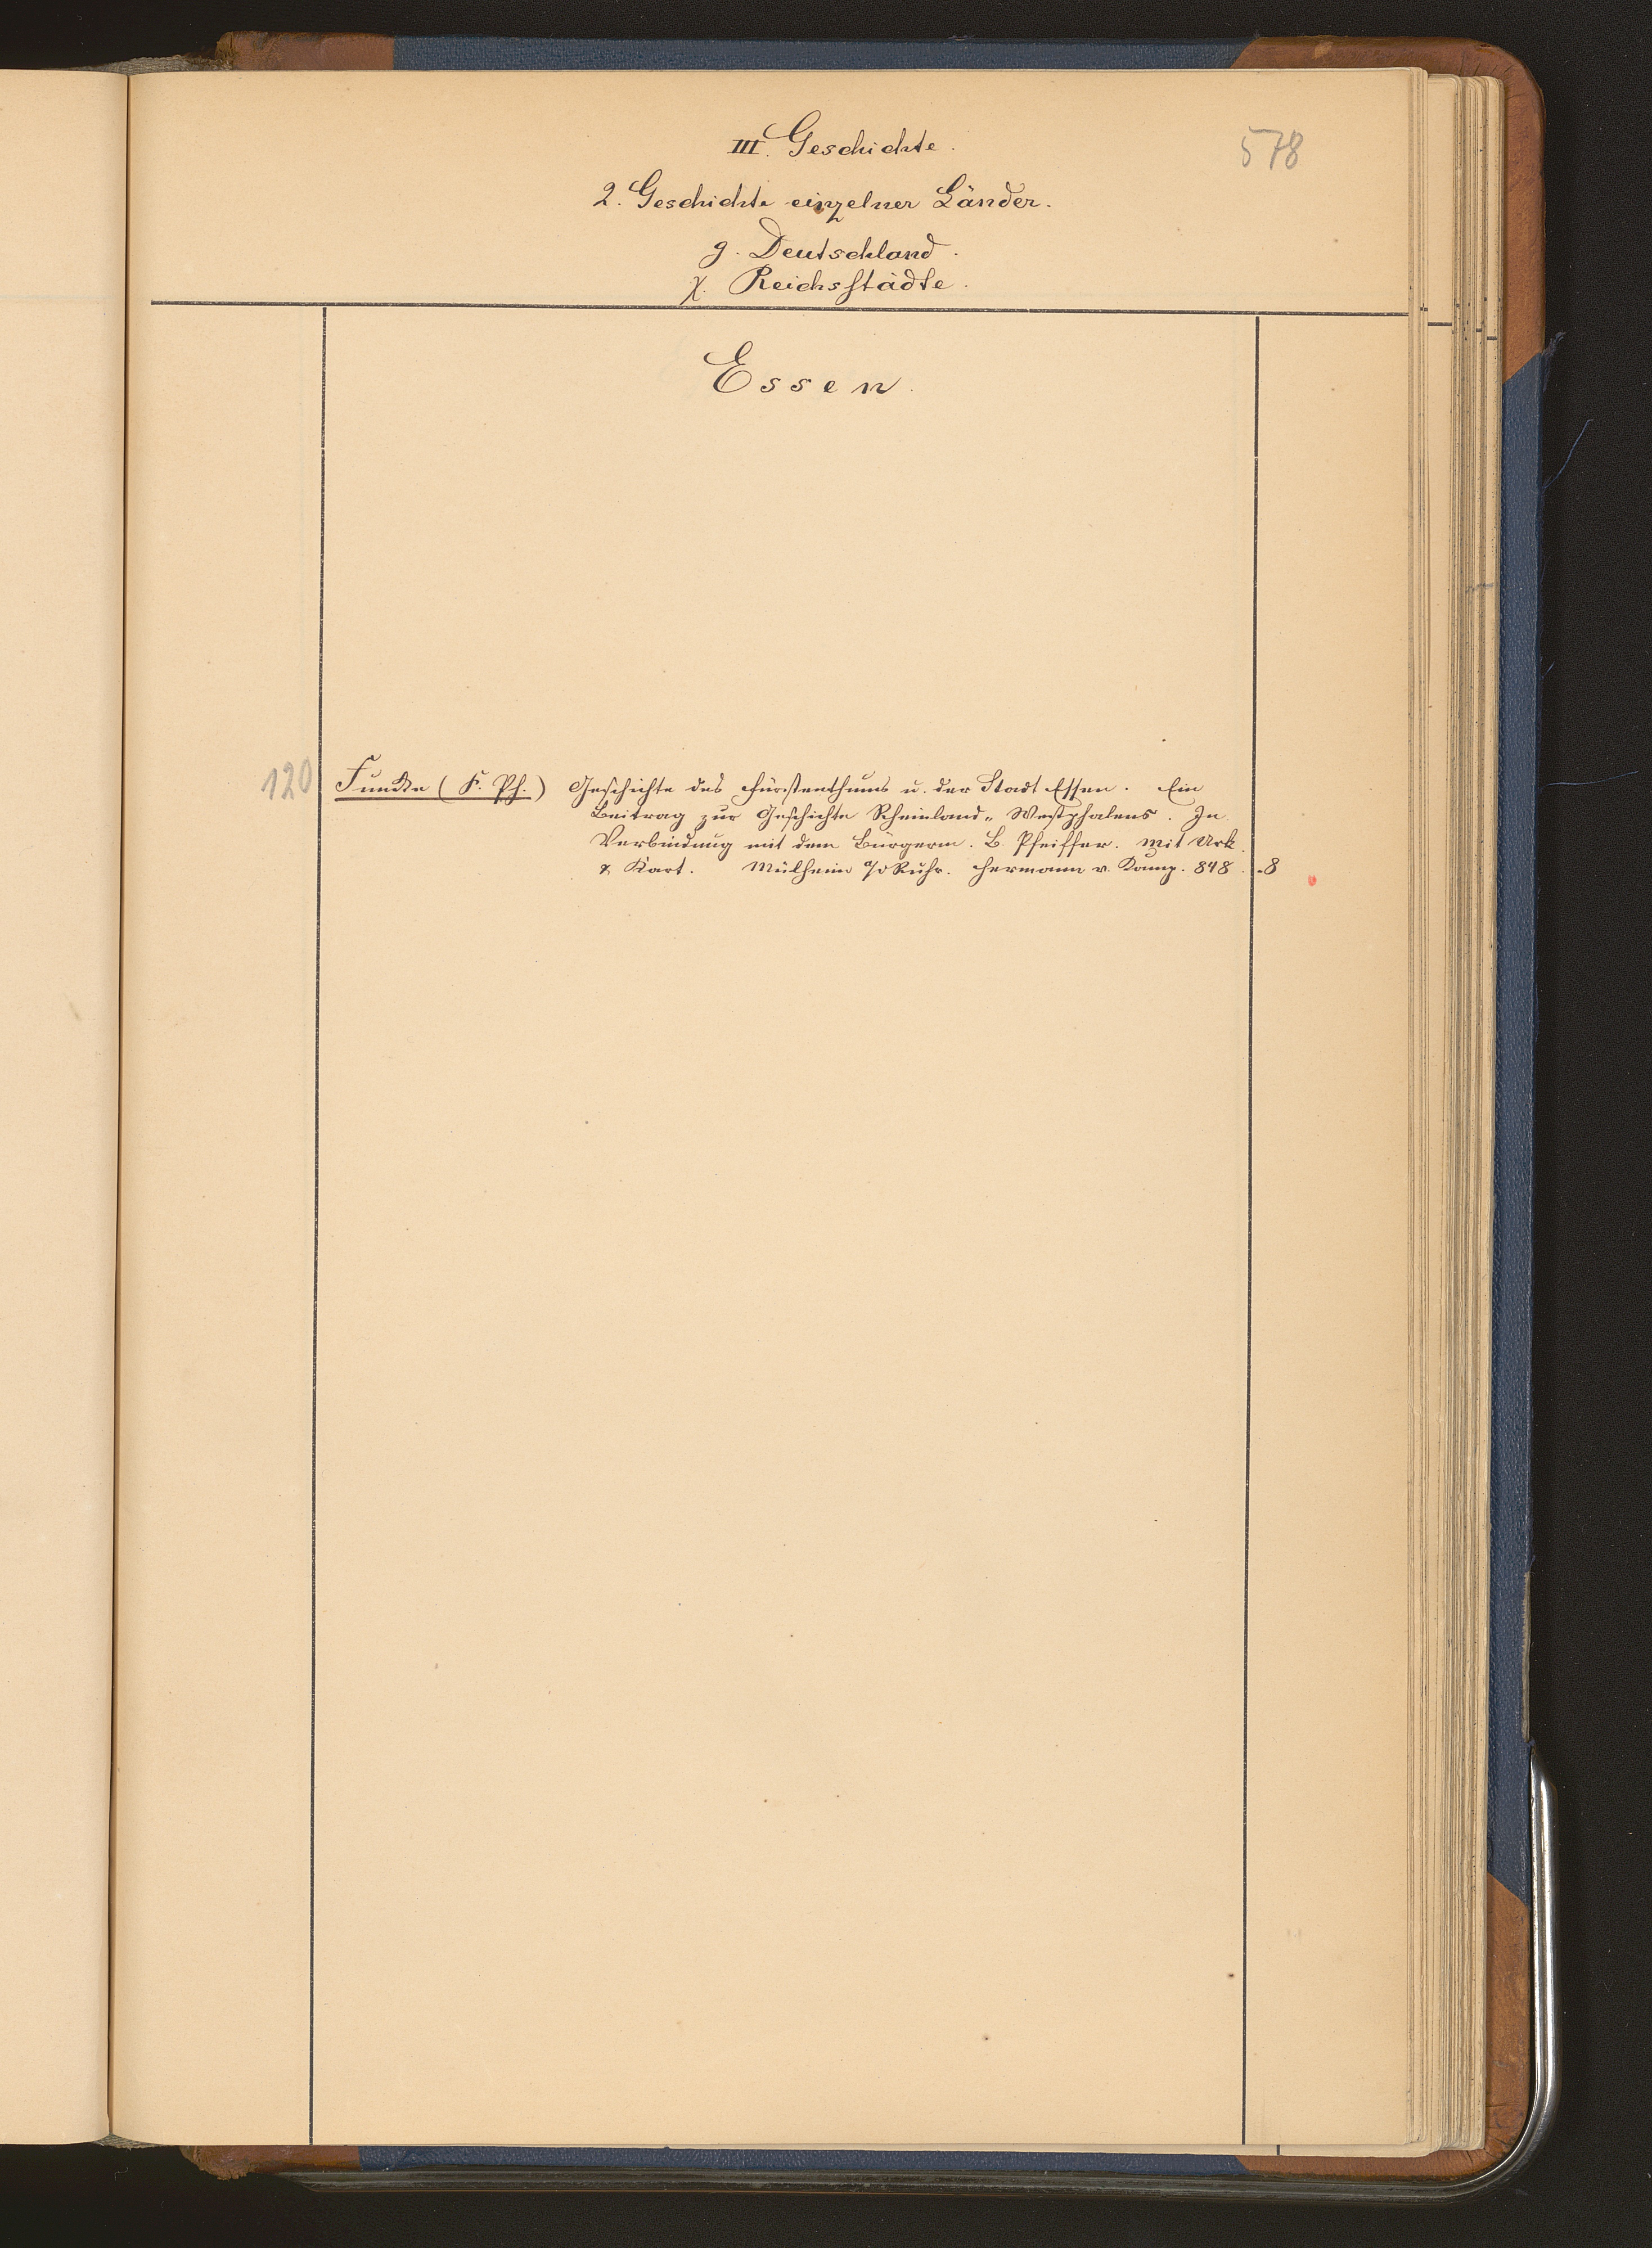 578
III. Geschichte.
2. Geschichte einzelner Länder.
g. Deutschland.
χ. Reichsstädte.
Essen.
120 Funcke (F. Ph.) Geschichte des Fürstenthums u. der Stadt Essen. Ein
Beitrag zur Geschichte Rheinland-Westphalens. In
Verbindung mit dem Bürgerm. B. Pfeiffer. Mit Urk.
& Kart. Mülheim a/d Ruhr. Hermann v. Kamp. 848. .8